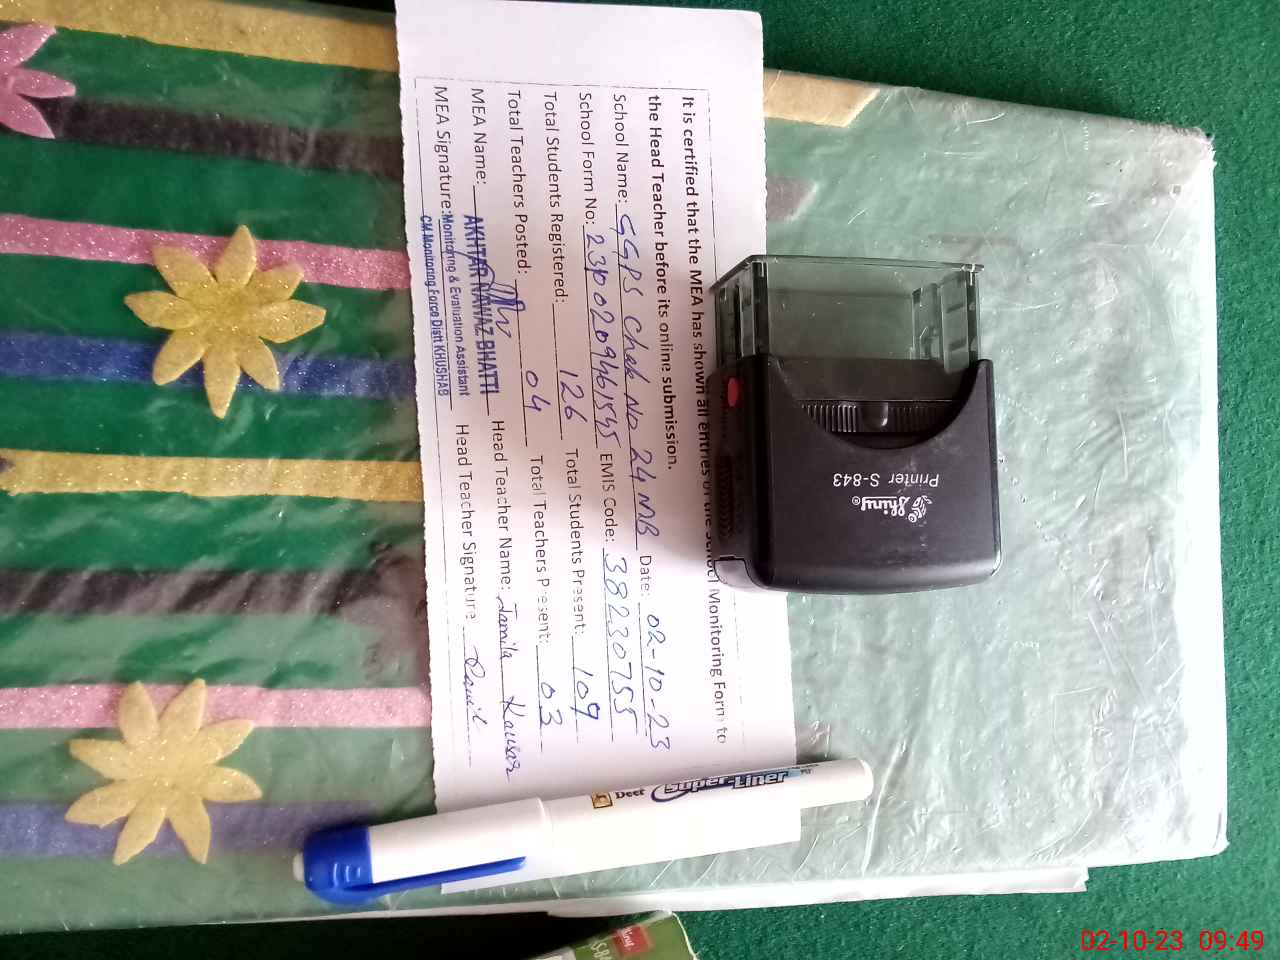 It is certified that the MEA has shown all entries of the School Monitoring Form to
the Head Teacher before its online submission.
School Name: GGPS Chak No 24 MB Date: 02-10-23
School Form No: EMIS Code: 38230755
Total Students Registered: 126 Total Students Present: 109
Total Teachers Posted: 04 Total Teachers Present: 03
MEA Name: AKHTAR NAWAZ BHATTI Head Teacher Name: Jamila Kausar
MEA Signature: Monitoring & Evaluation Assistant Head Teacher Signature
CM Monitoring Force Distt KHUSHAB
Shiny®
Printer S-843
Deer Super-Liner
02-10-23 09:49